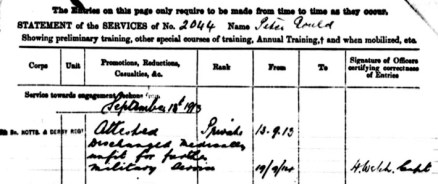 The Entries on this page only require to be made from time to time as they occur.
STATEMENT of the SERVICES of No. 2044 Name Peter Gould
Showing preliminary training, other special courses of training, Annual Training,† and when mobilized, etc.
Corps Unit Promotions, Reductions, Casualties, &c. Rank From To Signature of Officers certifying correctness of Entries
Service towards engagement reckons from
September 13th 1913
NOTTS. & DERBY REGT Attested Private 13.9.13
Discharged Medically
unfit for further
Military Service H. Welch, Capt